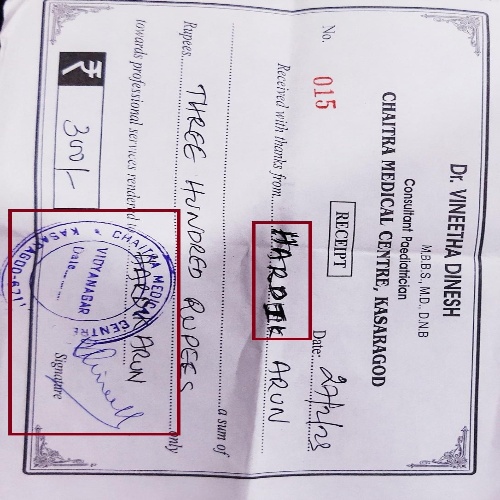 Dr. VINEETHA DINESH
M.B.B.S., M.D., D.N.B
Consultant Paediatrician
CHAITRA MEDICAL CENTRE, KASARAGOD
RECEIPT
No. 015 Date: 27/2/23
Received with thanks from HARDIK ARUN
a sum of
Rupees THREE HUNDRED RUPEES only
towards professional services rendered to HARDIK ARUN
₹ 300/-
CHAITRA MEDICAL CENTRE
VIDYANAGAR
Date
KASARAGOD-671
Signature